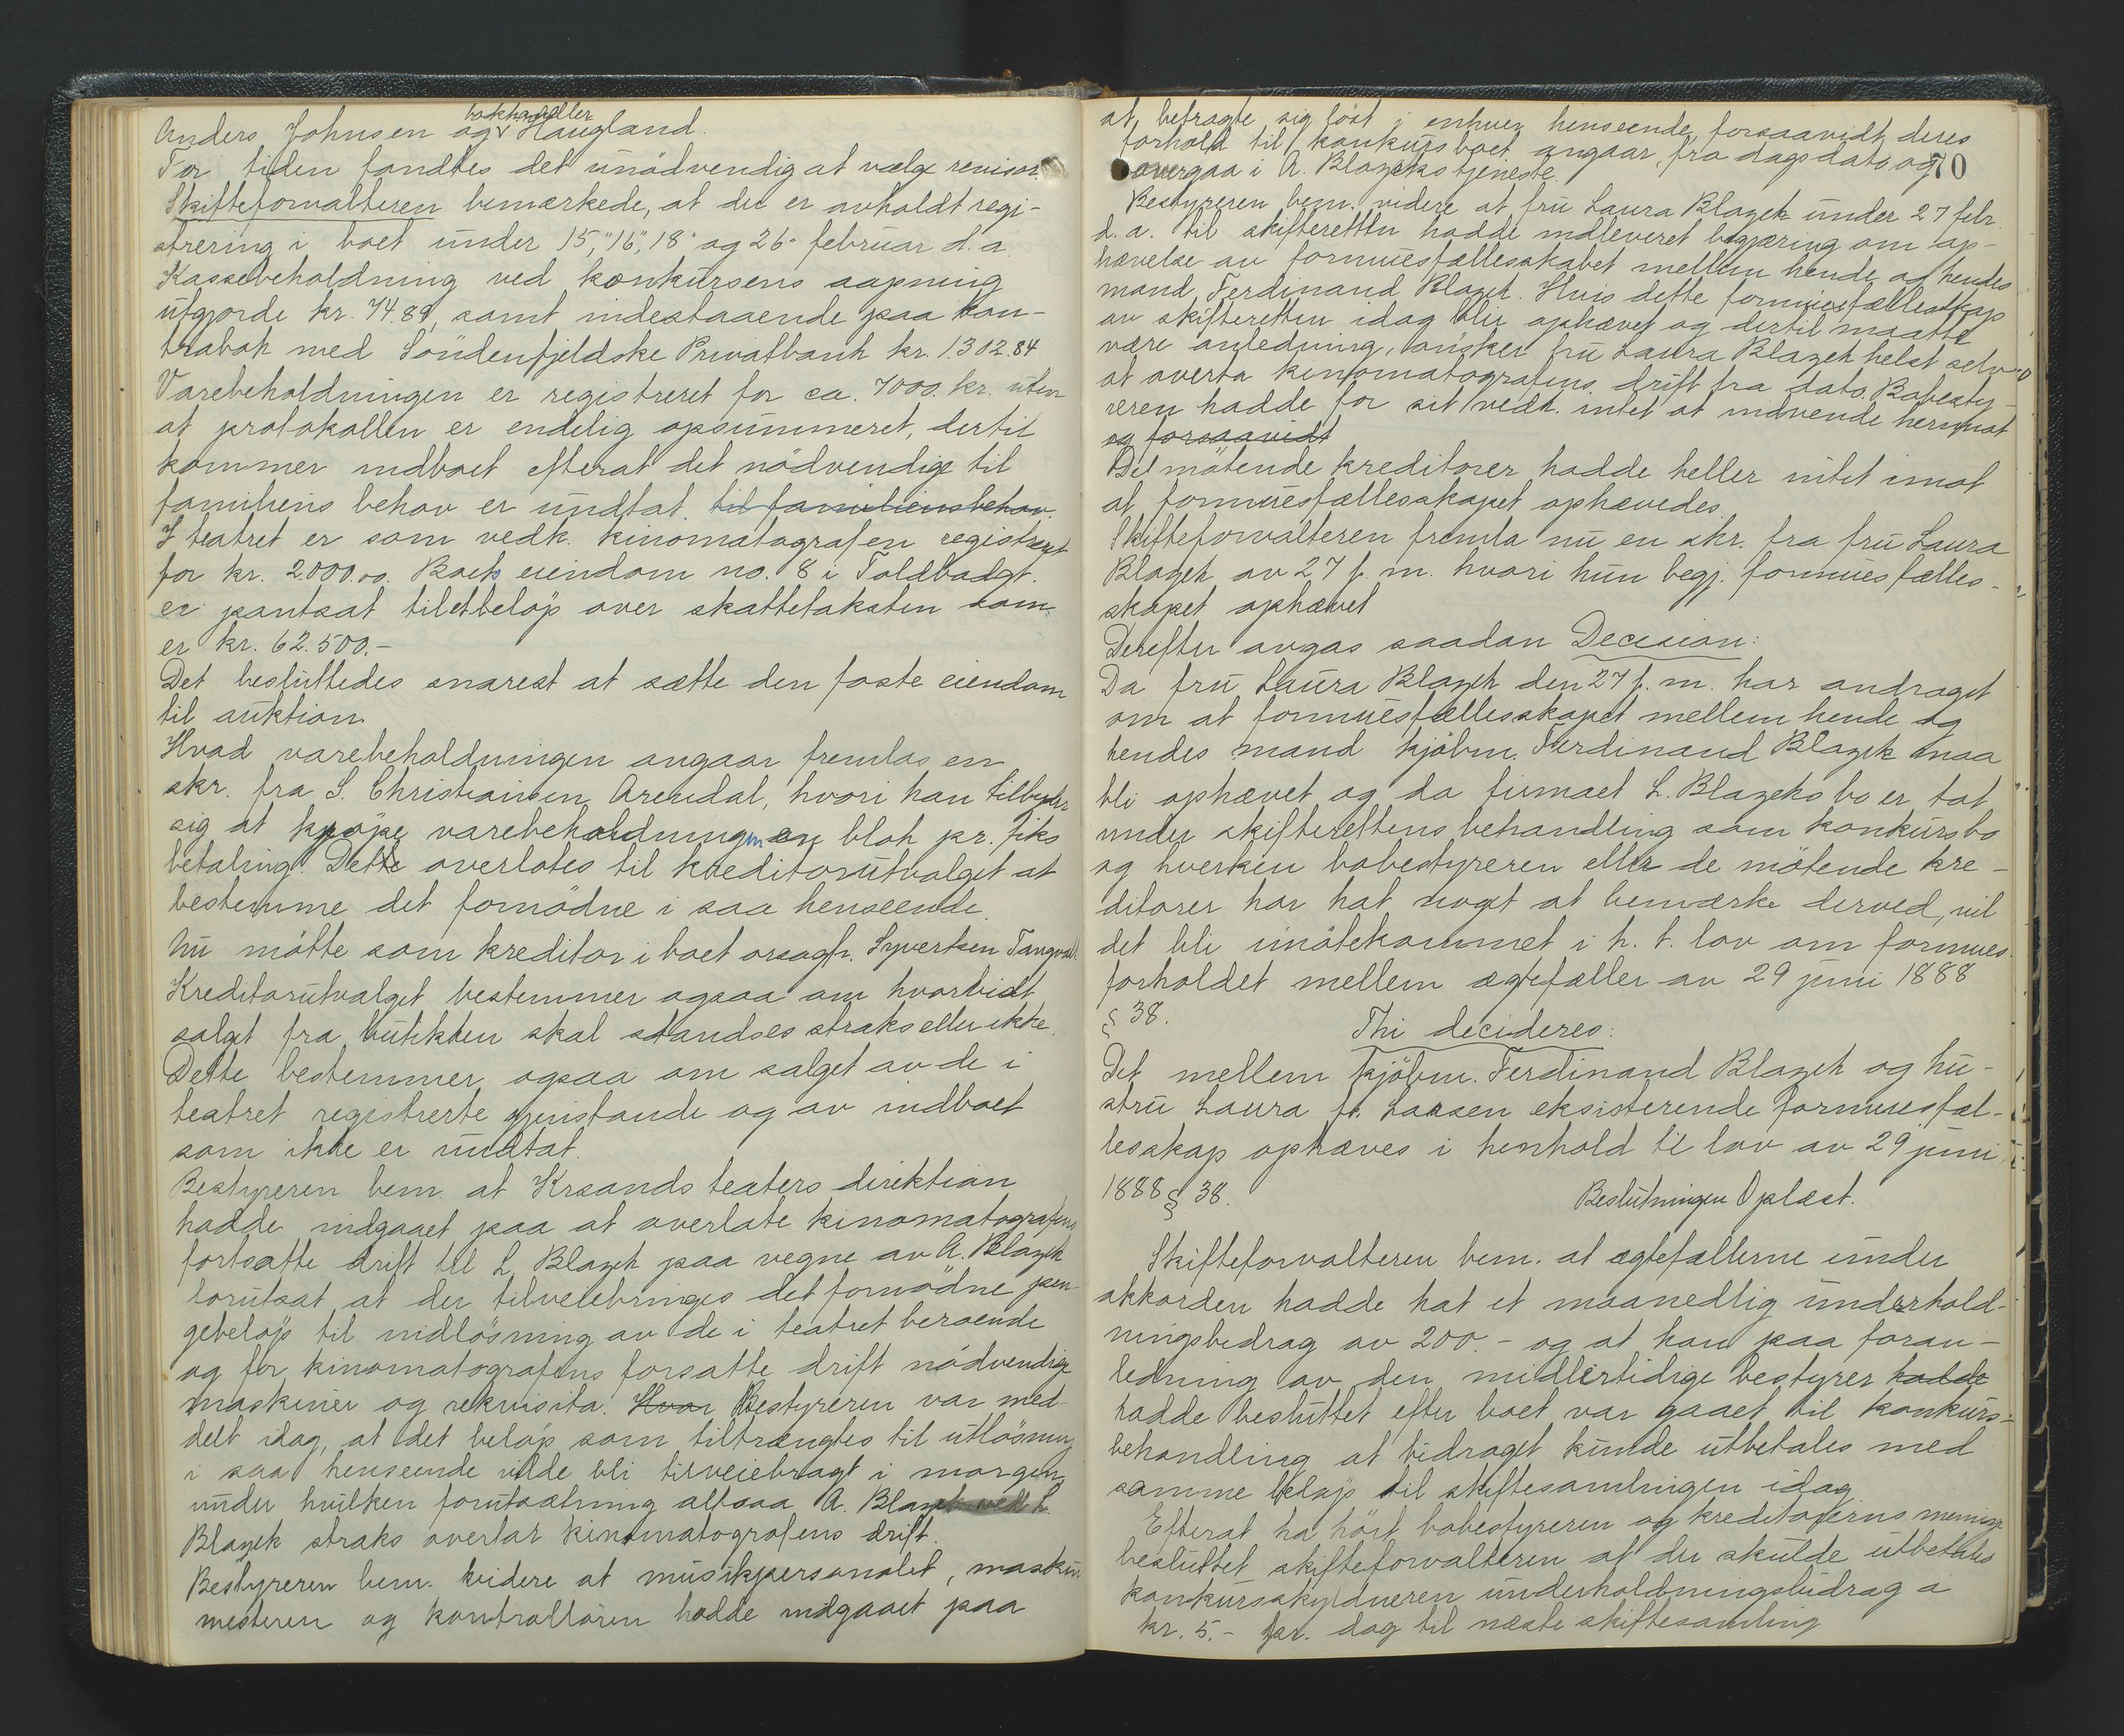 bokhandler
Anders Johnsen og Haugland.
For tiden fandtes det unödvendig at vælge revisor.
Skifteforvalteren bemærkede, at der er avholdt regi-
strering i boet under 15, 16, 18 og 26 februar d.a.
Kassebeholdning ved konkursens aapning
utgjorde kr. 74.89, samt indestaaende paa kon-
trabok med Söndenfjeldske Privatbank kr. 1302.84
Varebeholdningen er registreret for ca. 7000. kr. uten
at protokollen er endelig opsummeret, dertil
kommer indboet efterat det nödvendige til
familiens behov er undtat. til familiens behov.
I teatret er som vedk. kinomatografen registreret
for kr. 2000.00. Boets eiendom no. 8 i Toldbodgt.
er pantsat til et belöp over skattetaksten som
er kr. 62.500.-
Det besluttedes snarest at sætte den faste eiendom
til auktion.
Hvad varebeholdningen angaar fremlas en
skr. fra S. Christiansen, Arendal, hvori han tilbyder
sig at kjöpe varebeholdningen en blok pr. fiks
betaling. Dette overlotes til kreditorutvalget at
bestemme det fornödne i saa henseende.
Nu mötte som kreditor i boet orsagf. Syvertsen Tangvall
Kreditorutvalget bestemmer ogsaa om hvorvidt
salget fra butikken skal standses straks eller ikke.
Dette bestemmer ogsaa om salget av de i
teatret registrerte gjenstande og av indboet
som ikke er undtat.
Bestyreren bem. at Krsands teaters direktion
hadde indgaaet paa at overlate kinomatografens
fortsatte drift til L. Blazek paa vegne av A. Blazek
forutsat at der tilveiebringes det fornödne pen-
gebelöp til indlösning av de i teatret beroende
og for kinomatografens forsatte drift nödvendige
maskiner og rekvisita. Hvor Bestyreren var med-
delt idag, at det belöp som tiltrængtes til utlösning
i saa henseende vilde bli tilveiebragt i morgen,
under hvilken forutsætning altsaa A. Blazek ved L.
Blazek straks overtar kinomatografens drift.
Bestyreren bem. videre at musikpersonalet, maskin
mesteren og kontrollören hadde indgaaet paa
at betragte sig löst i enhver henseende, forsaavidt deres
forhold til konkursboet angaar, fra dags dato og
70
overgaa i A. Blazeks tjeneste.
Bestyreren bem. videre at fru Laura Blazek under 27 febr.
d.a. til skifteretten hadde indleveret begjæring om op-
hævelse av formuesfællesskabet mellem hende og hendes
mand Ferdinand Blazek. Hvis dette formuesfællesskap
av skifteretten idag blir ophævet og dertil maatte
være anledning, önsker fru Laura Blazek helst selv
at overta kinomatografens drift fra dato. Bobesty-
reren hadde for sit vedk. intet at indvende herimot
og forsaavidt
De mötende kreditorer hadde heller intet imot
at formuesfællesskapet ophævedes.
Skifteforvalteren fremla nu en skr. fra fru Laura
Blazek av 27 f. m. hvori hun begj. formuesfælles-
skapet ophævet
Derefter avgas saadan Decision:
Da fru Laura Blazek den 27 f. m. har andraget
om at formuesfællesskapet mellem hende og
hendes mand kjöbm. Ferdinand Blazek maa
bli ophævet og da firmaet L. Blazeks bo er tat
under skifterettens behandling som konkursbo
og hverken bobestyreren eller de mötende kre-
ditorer har hat noget at bemærke derved, vil
det bli imötekommet i h. t. lov om formues
forholdet mellem ægtefæller av 29 juni 1888
§ 38.
Thi decideres:
Det mellem kjöbm. Ferdinand Blazek og hu-
stru Laura f. Larsen eksisterende formuesfæl-
lesskap ophæves i henhold til lov av 29 juni
1888 § 38.
Beslutningen Oplæst.
Skifteforvalteren bem. at ægtefællerne under
akkorden hadde hat et maanedlig underhold-
ningsbidrag av 200.- og at han paa foran-
ledning av den midlertidige bestyrer hadde
hadde besluttet efter boet var gaaet til konkurs-
behandling at bidraget kunde utbetales med
samme belöp til skiftesamlingen idag.
Efterat ha hört bobestyreren og kreditorerns mening
besluttet skifteforvalteren at der skulde utbetales
konkursskyldneren underholdningsbidrag a
kr. 5.- pr. dag til næste skiftesamling